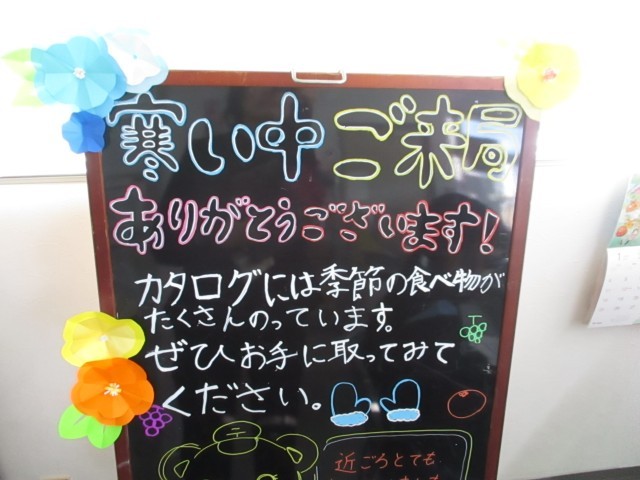 寒い中ご来局
ありがとうございます!
カタログには季節の食べ物が
たくさんのっています。
ぜひお手に取ってみて
ください。
近ごろとても